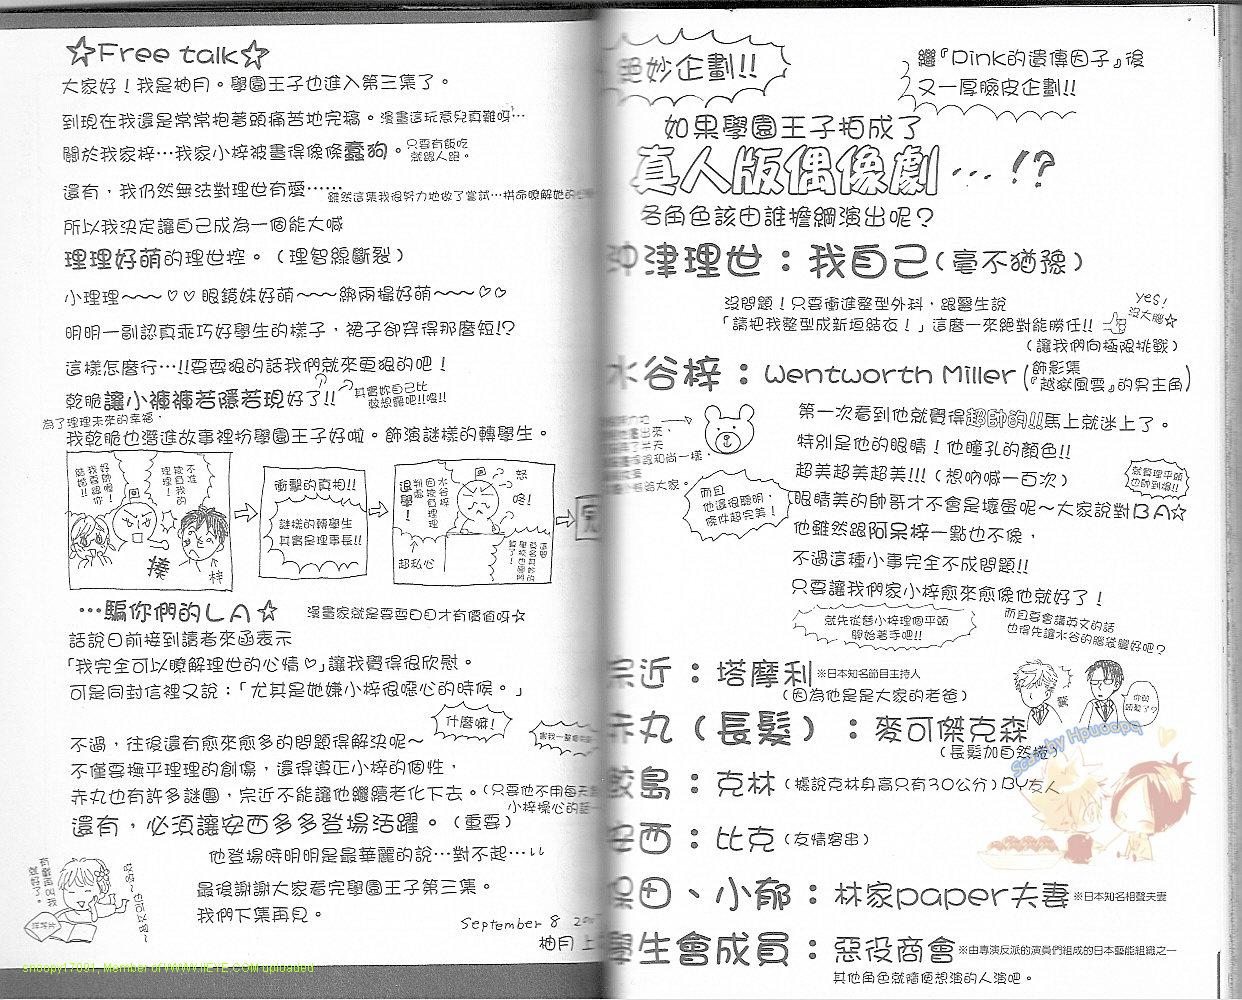 ☆Free talk☆
大家好！我是柚月。學園王子也進入第三集了。
到現在我還是常常抱著頭痛苦地完稿。漫畫這玩意兒真難呀…
關於我家梓…我家小梓被畫得像條蠢狗。只要有飯吃
就跟人跑。
還有，我仍然無法對理世有愛……雖然這集我很努力地做了嘗試…拼命瞭解她的
所以我決定讓自己成為一個能大喊
理理好萌的理世控。（理智線斷裂）
小理理~~~♡♡眼鏡妹好萌~~~綁兩撮好萌~~~♡♡
明明一副認真乖巧好學生的樣子，裙子卻穿得那麼短!?
這樣怎麼行…!!要耍狠的話我們就來更狠的吧！
乾脆讓小褲褲若隱若現好了!!
其實妳自己比
較想露吧!!喂!!
為了理理未來的幸福，
我乾脆也潛進故事裡扮學園王子好啦。飾演謎樣的轉學生。
不准
理理！
揍
梓
衝擊的真相!!
謎樣的轉學生
其實是理事長!!
水谷梓
退學！
超私心
怒
嗆！
…騙你們的LA☆
漫畫家就是要耍白目才有價值呀☆
話說日前接到讀者來函表示
「我完全可以瞭解理世的心情♡」讓我覺得很欣慰。
可是同封信裡又說：「尤其是她嫌小梓很噁心的時候。」
什麼嘛！
不過，往後還有愈來愈多的問題得解決呢~
不僅要撫平理理的創傷，還得導正小梓的個性，
赤丸也有許多謎團，宗近不能讓他繼續老化下去。（只要他不用每天
小梓操心的話
還有，必須讓安西多多登場活躍。（重要）
他登場時明明是最華麗的說…對不起…
最後謝謝大家看完學園王子第三集。
我們下集再見。
September 8
柚月 上
絕妙企劃!!
繼『Pink的遺傳因子』後
又一厚臉皮企劃!!
如果學園王子拍成了
真人版偶像劇…!?
各角色該由誰擔綱演出呢？
沖津理世：我自己（毫不猶豫）
沒問題！只要衝進整型外科，跟醫生說
「請把我整型成新垣結衣！」這麼一來絕對能勝任!!
（讓我們向極限挑戰）
yes!
沒大腦☆
水谷梓：Wentworth Miller（飾影集
『越獄風雲』的男主角）
第一次看到他就覺得超帥的!!馬上就迷上了。
特別是他的眼睛！他瞳孔的顏色!!
超美超美超美!!!（想吶喊一百次）
就算理平頭
也帥到爆!!
而且
他還很聰明，
條件超完美！
眼睛美的帥哥才不會是壞蛋呢~大家說對BA☆
他雖然跟阿呆梓一點也不像，
不過這種小事完全不成問題!!
只要讓我們家小梓愈來愈像他就好了！
就先從替小梓理個平頭
開始著手吧!!
而且要會講英文的話
也得先讓水谷的腦袋變好吧？
宗近：塔摩利※日本知名節目主持人
（因為他是是大家的老爸）
赤丸（長髮）：麥可傑克森
（長髮加自然捲）
鮫島：克林（據說克林身高只有30公分）BY友人
安西：比克（友情客串）
保田、小郁：林家paper夫妻※日本知名相聲夫妻
學生會成員：惡役商會※由專演反派的演員們組成的日本藝能組織之一
其他角色就隨便想演的人演吧。
snoopy17091, Member of WWW.IIETE.COM uploaded